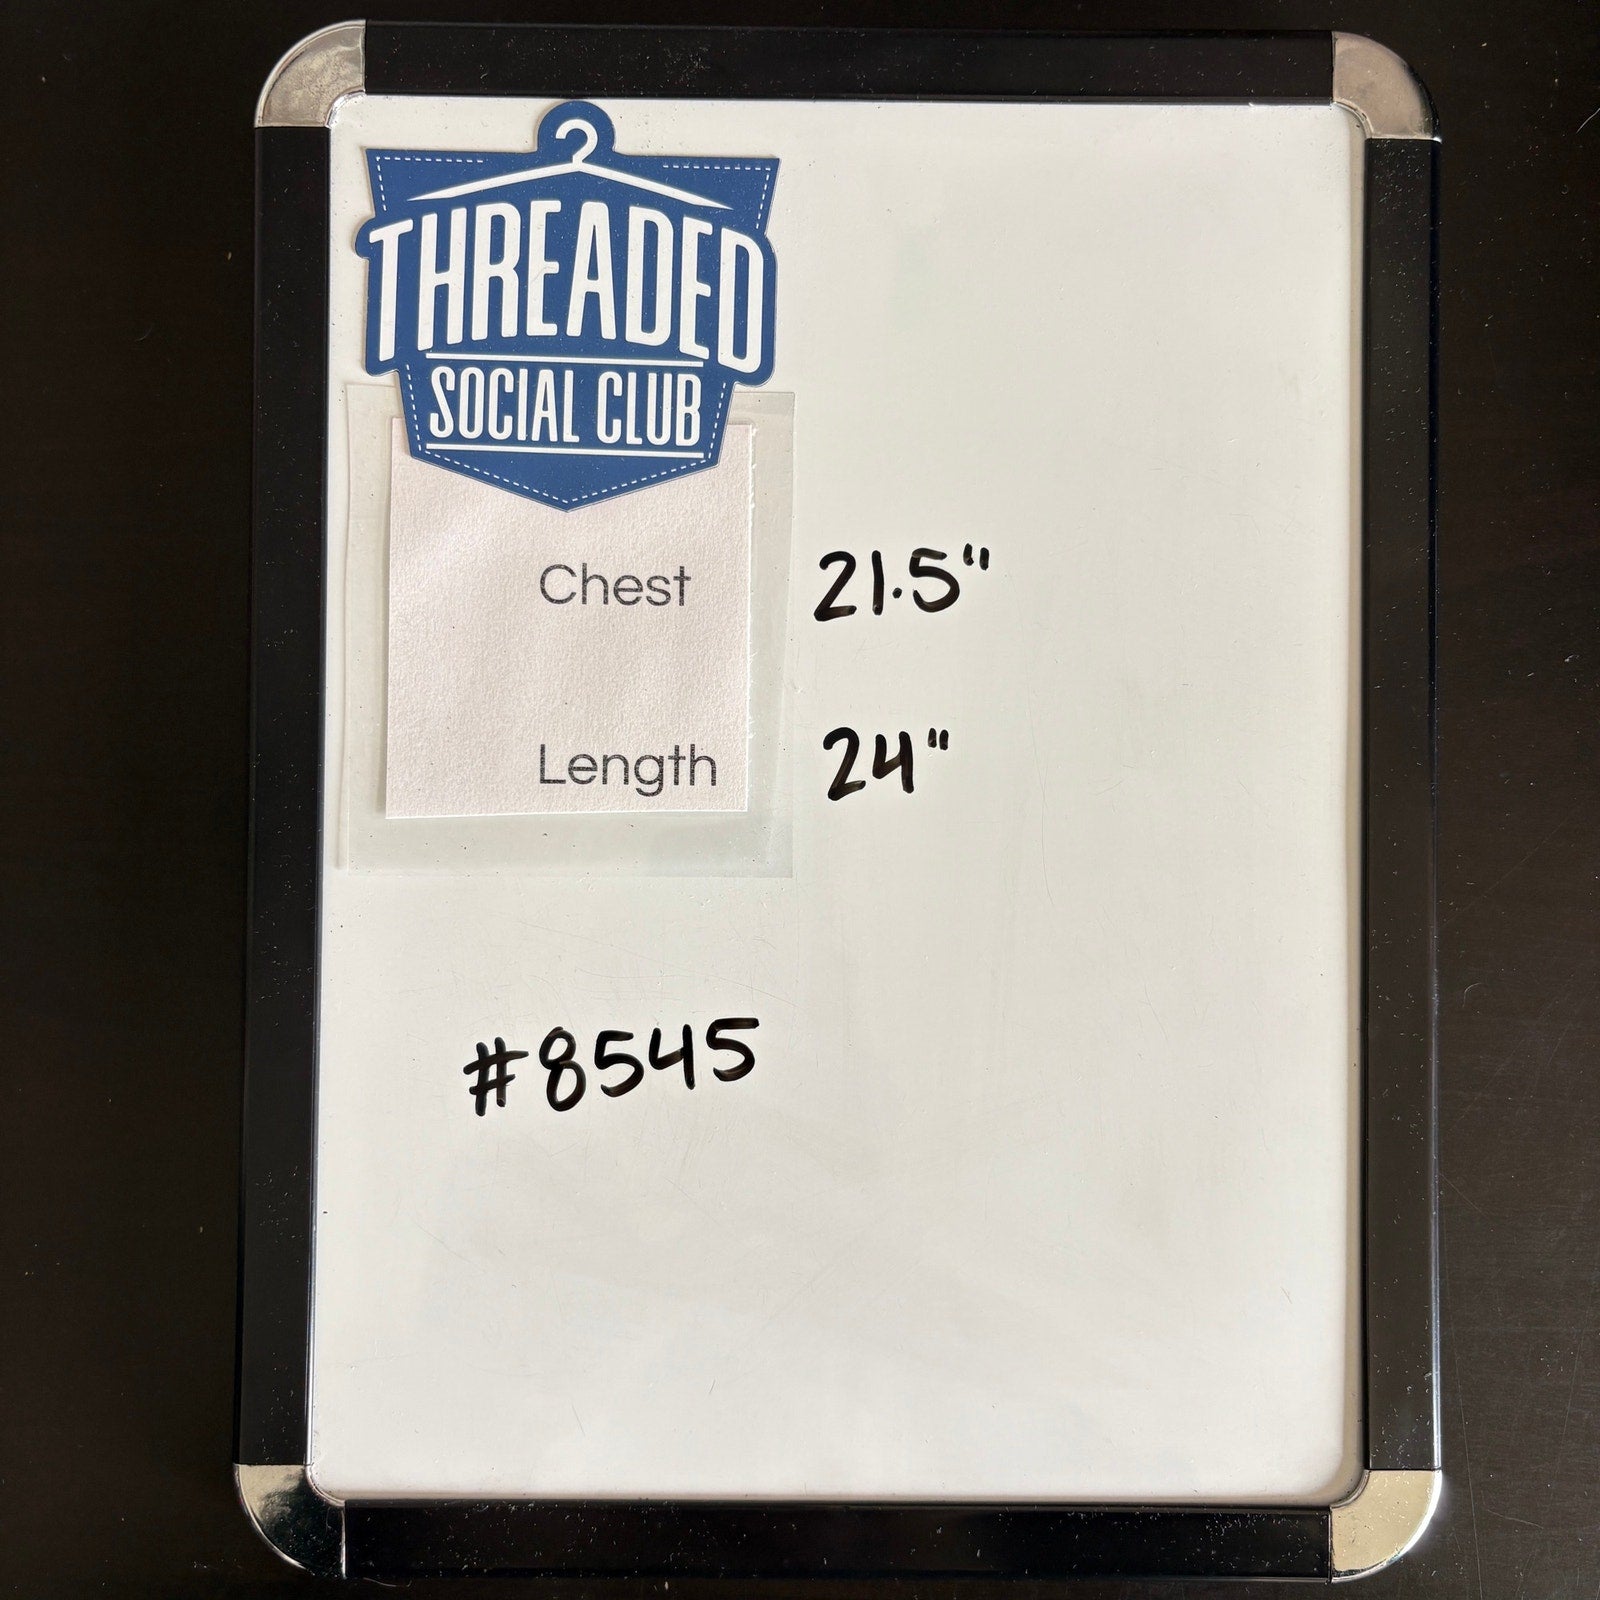 THREADED
SOCIAL CLUB
Chest 21.5"
Length 24"
#8545